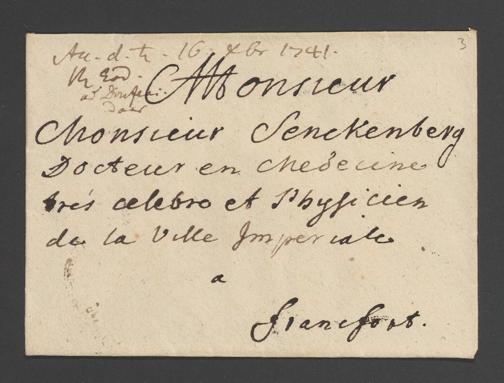 3
Au. d. tr. 16. Xbr 1741.
Monsieur
Monsieur Senckenberg
Docteur en Medecine
trés celebre et Physicien
de la Ville Imperiale
a
francfort.